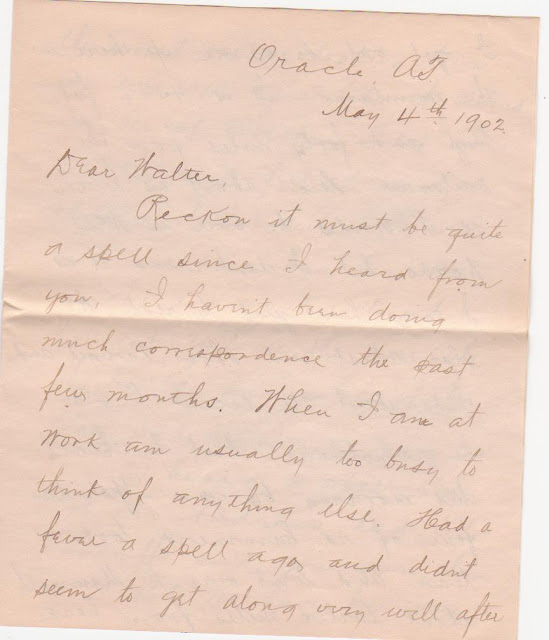 Oracle, A.T.
May 4th 1902.
Dear Walter,
Reckon it must be quite
a spell since I heard from
you. I havin't been doing
much correspondence the past
few months. When I am at
work am usually too busy to
think of anything else. Had a
fever a spell ago, and didn't
seem to get along very well after